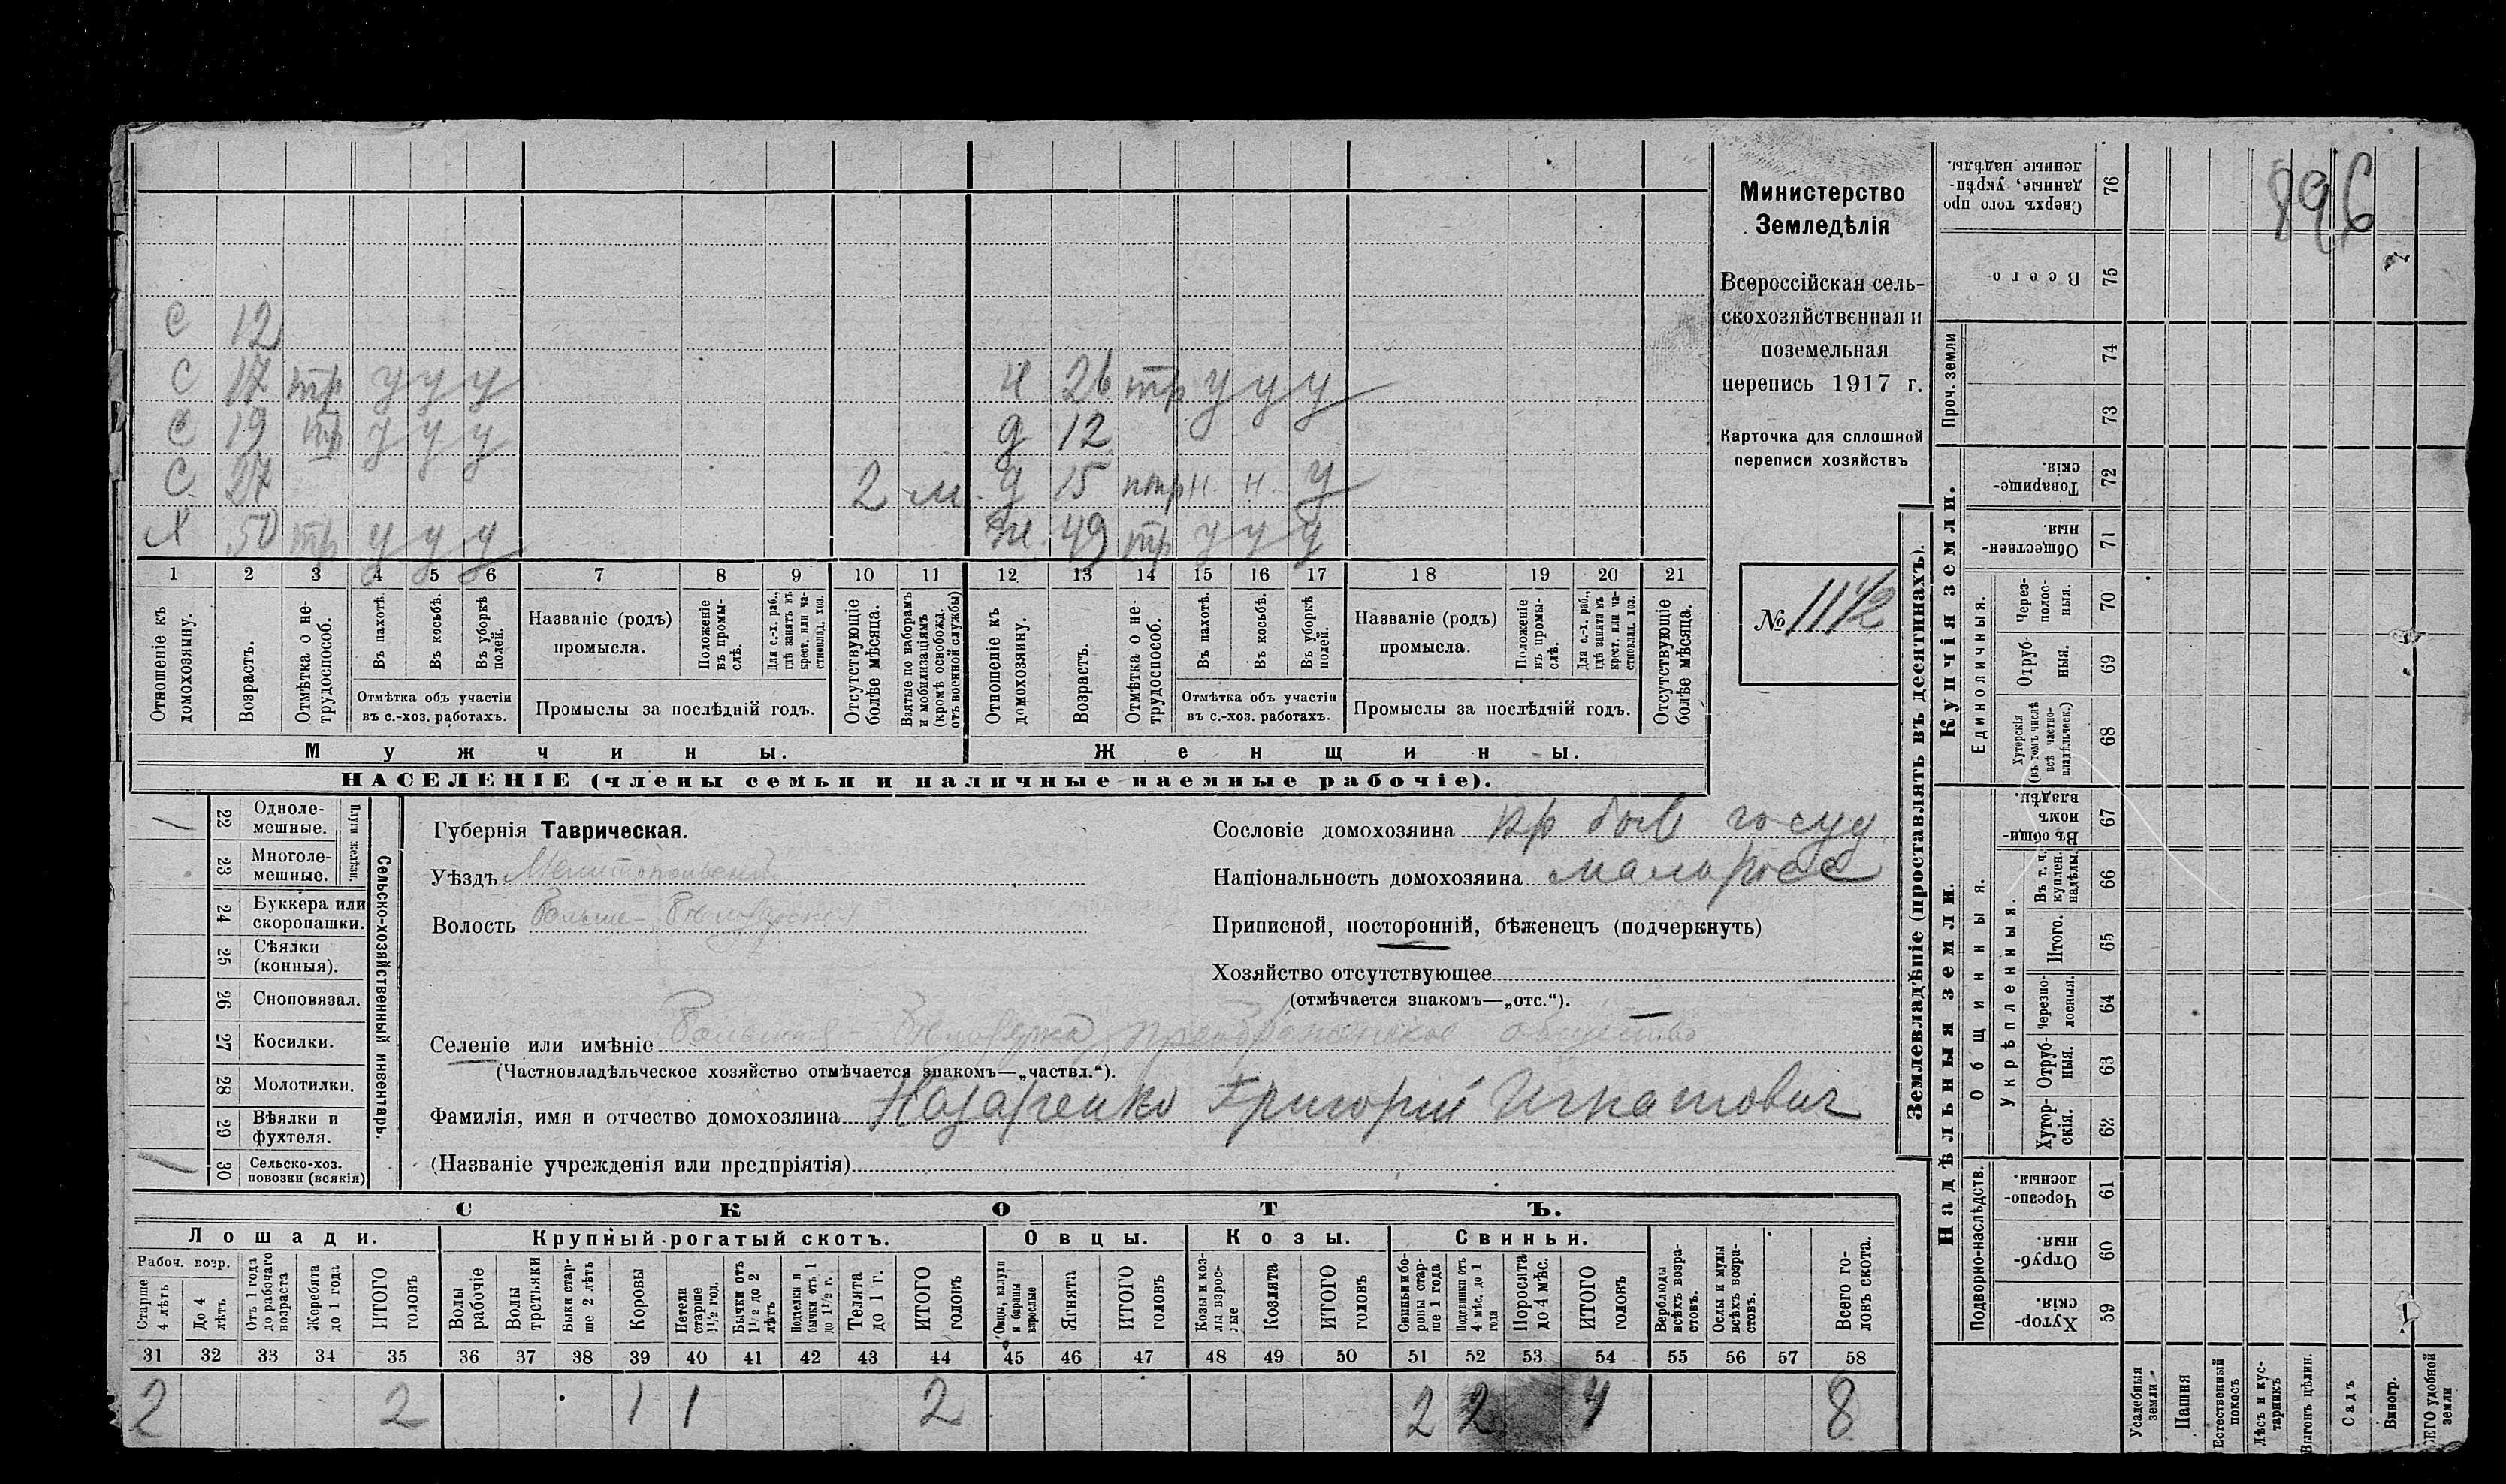 С 12
С 17 тр у у у
Н 26 тр у у у
С 19 тр у у у
д 12
С 27 2 м.
д 15 птр н. н. у
Х 50 тр у у у
ж. 49 тр у у у
1 2 3 4 5 6 7 8 9 10 11 12 13 14 15 16 17 18 19 20 21
Отношеніе къ домохозяину.
Возрастъ.
Отмѣтка о нетрудоспособ.
Въ пахотѣ.
Въ косьбѣ.
Въ уборкѣ полей.
Отмѣтка объ участіи
въ с.-хоз. работахъ.
Названіе (родъ)
промысла.
Положеніе въ промыслѣ.
Для с.-х. раб., гдѣ занятъ въ крест. или частновлад. хоз.
Промыслы за послѣдній годъ.
Отсутствующіе болѣе мѣсяца.
Взятые по наборамъ и мобилизаціямъ (кромѣ освобожд. отъ военной службы)
Отношеніе къ домохозяину.
Возрастъ.
Отмѣтка о нетрудоспособ.
Въ пахотѣ.
Въ косьбѣ.
Въ уборкѣ полей.
Отмѣтка объ участіи
въ с.-хоз. работахъ.
Названіе (родъ)
промысла.
Положеніе въ промыслѣ.
Для с.-х. раб., гдѣ занята въ крест. или частновлад. хоз.
Промыслы за послѣдній годъ.
Отсутствующіе болѣе мѣсяца.
Мужчины.
Женщины.
НАСЕЛЕНІЕ (члены семьи и наличные наемные рабочіе).
Министерство
Земледѣлія
Всероссійская сель-
скохозяйственная и
поземельная
перепись 1917 г.
Карточка для сплошной
переписи хозяйствъ
№ 1112
896
/ 22 Одноле-
мешные.
23 Многоле-
мешные.
Плуги желѣзн.
24 Буккера или
скоропашки.
25 Сѣялки
(конныя).
26 Сноповязал.
27 Косилки.
28 Молотилки.
29 Вѣялки и
фухтеля.
/ 30 Сельско-хоз.
повозки (всякія)
Сельско-хозяйственный инвентарь.
Губернія Таврическая.
Уѣздъ Мелитопольскій
Волость Больше-Бѣлозерская
Сословіе домохозяина кр быв госуд
Національность домохозяина малоросс
Приписной, посторонній, бѣженецъ (подчеркнуть)
Хозяйство отсутствующее
(отмѣчается знакомъ—„отс.“).
Селеніе или имѣніе Большая-Бѣлозерка, Преображенское общество
(Частновладѣльческое хозяйство отмѣчается знакомъ—„частвл.“).
Фамилія, имя и отчество домохозяина Назаренко Григорій Игнатович
(Названіе учрежденія или предпріятія)
СКОТЪ.
Лошади.
Крупный рогатый скотъ.
Овцы.
Козы.
Свиньи.
Рабоч. возр.
Старше 4 лѣтъ
До 4 лѣтъ
Отъ 1 года до рабочаго возраста
Жеребята до 1 года
ИТОГО головъ
Волы рабочіе
Волы третьяки
Быки старше 2 лѣтъ
Коровы
Нетели старше 1½ год.
Бычки отъ 1½ до 2 лѣтъ
Неделки и бычки отъ 1 до 1½ г.
Телята до 1 г.
ИТОГО головъ
Овцы, валухи и бараны взрослые
Ягнята
ИТОГО головъ
Козы и козлы взрослые
Козлята
ИТОГО головъ
Свиньи и боровы старше 1 года
Подсвинки отъ 4 мѣс. до 1 года
Поросята до 4 мѣс.
ИТОГО головъ
Верблюды всѣхъ возрастовъ.
Ослы и мулы всѣхъ возрастовъ.
Всего головъ скота.
31 32 33 34 35 36 37 38 39 40 41 42 43 44 45 46 47 48 49 50 51 52 53 54 55 56 57 58
2 2 1 1 2 2 2 4 8
Землевладѣніе (проставлять въ десятинахъ).
Надѣльныя земли.
Купчія земли.
Проч. земли
Сверхъ того проданные, укрѣпленные надѣлы.
76
Всего
75
74
73
Товарищескія.
72
Общественныя.
71
Единоличныя.
Черезполосныя.
70
Отрубныя.
69
Хуторскія (въ томъ числѣ всѣ частновладѣльческ.)
68
Общинныя.
Въ общинномъ владѣн.
67
Укрѣпленныя.
Въ т. ч. куплен. надѣлы.
66
Итого.
65
Черезполосныя.
64
Отрубныя.
63
Хуторскія.
62
Подворно-наслѣдств.
Черезполосныя.
61
Отрубныя.
60
Хуторскія.
59
Усадебныя земли
Пашня
Естественный покосъ
Лѣсъ и кустарникъ
Выгонъ цѣлин.
Садъ
Виногр.
ВСЕГО удобной земли